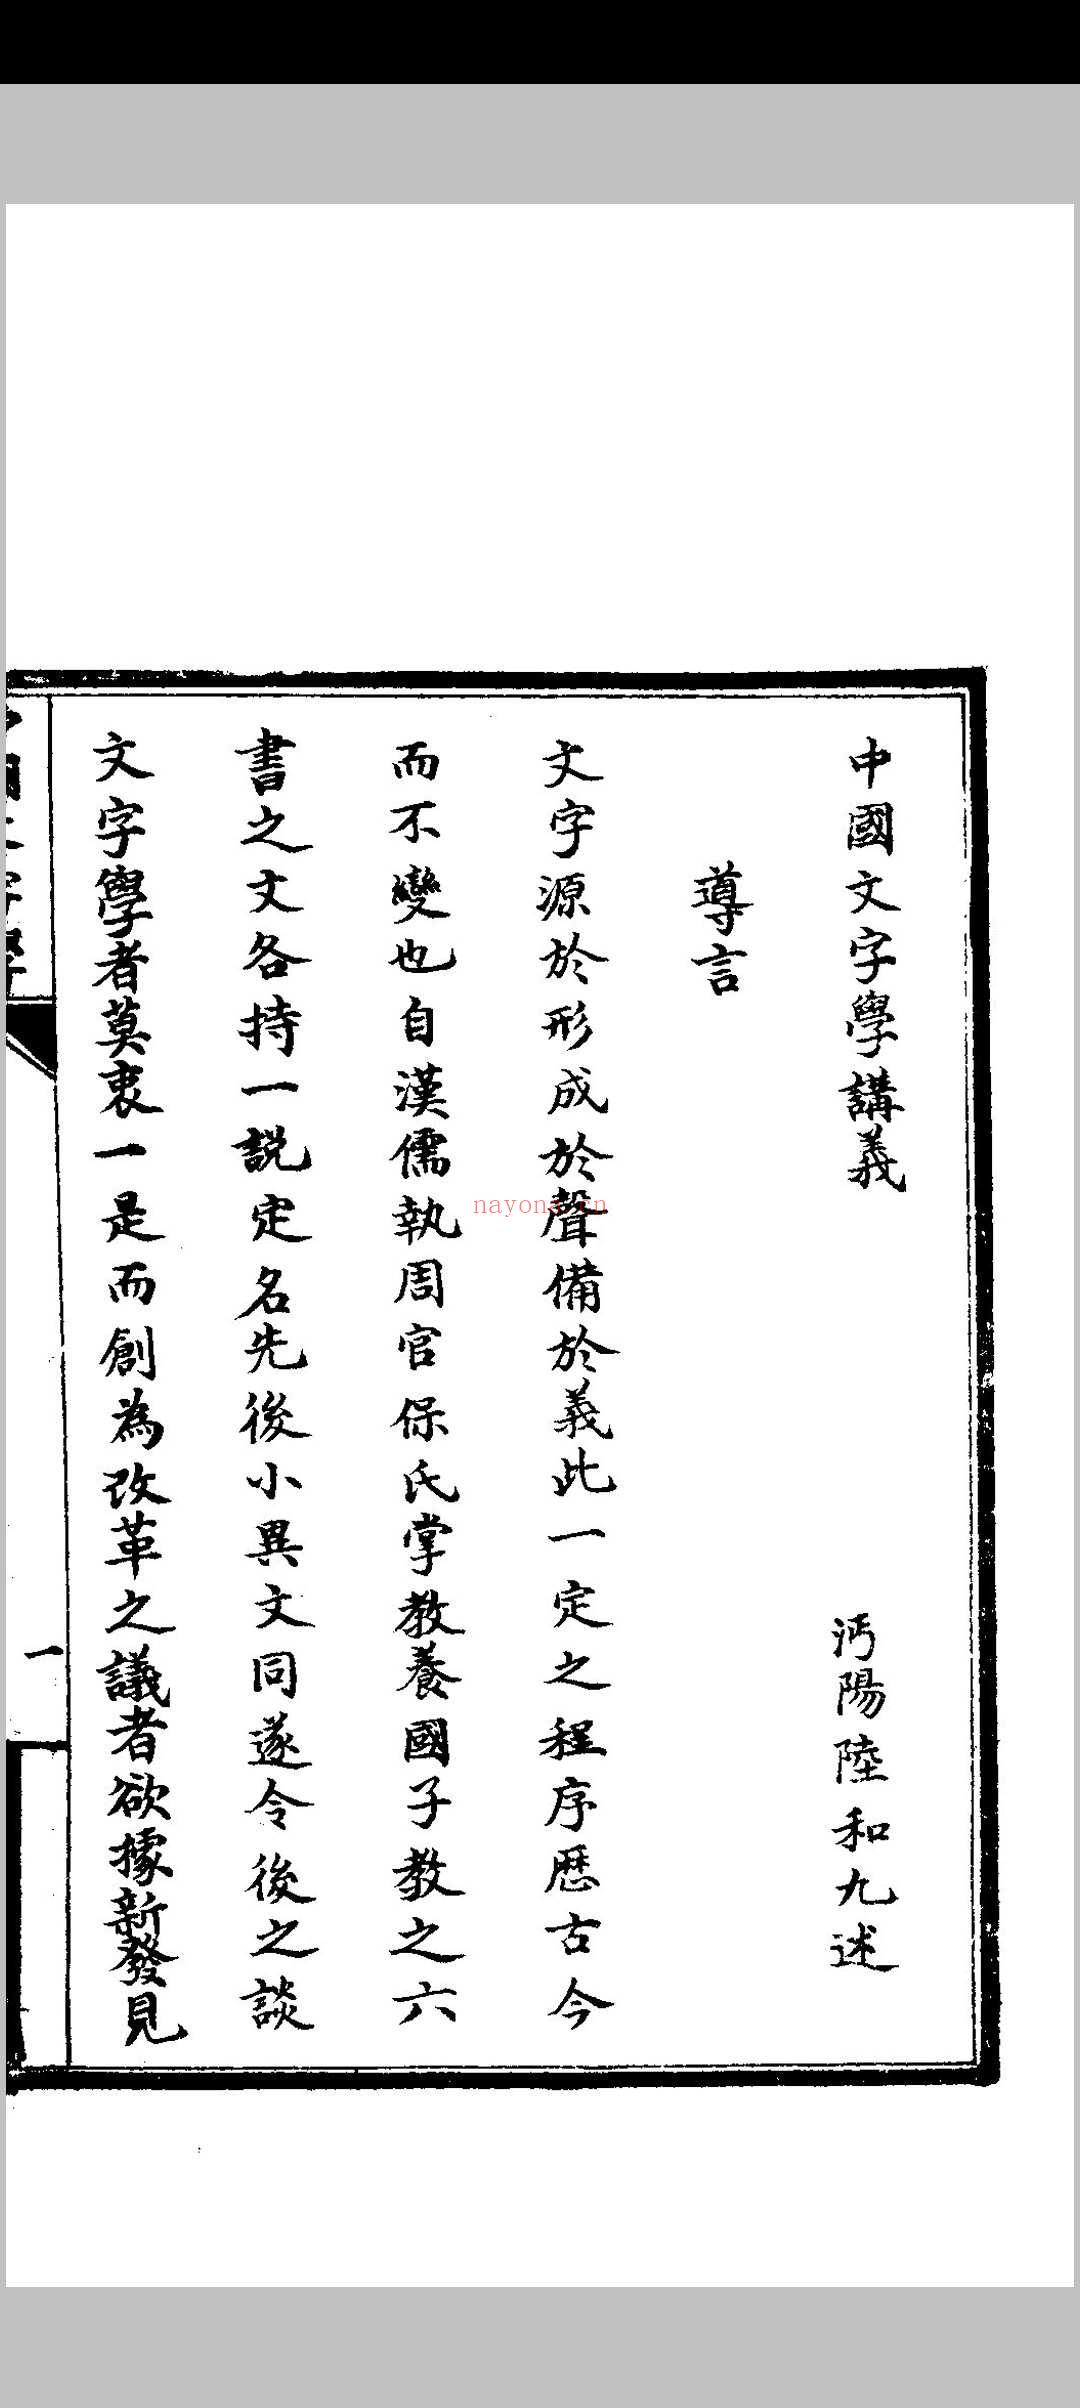 中國文字學講義 沔陽陸和九述
導言
文字源於形成於聲備於義此一定之程序歷古今
而不變也自漢儒執周官保氏掌教養國子教之六
書之文各持一説定名先後小異文同遂令後之談
文字學者莫衷一是而創為改革之議者欲據新發見
一
nayona.cn